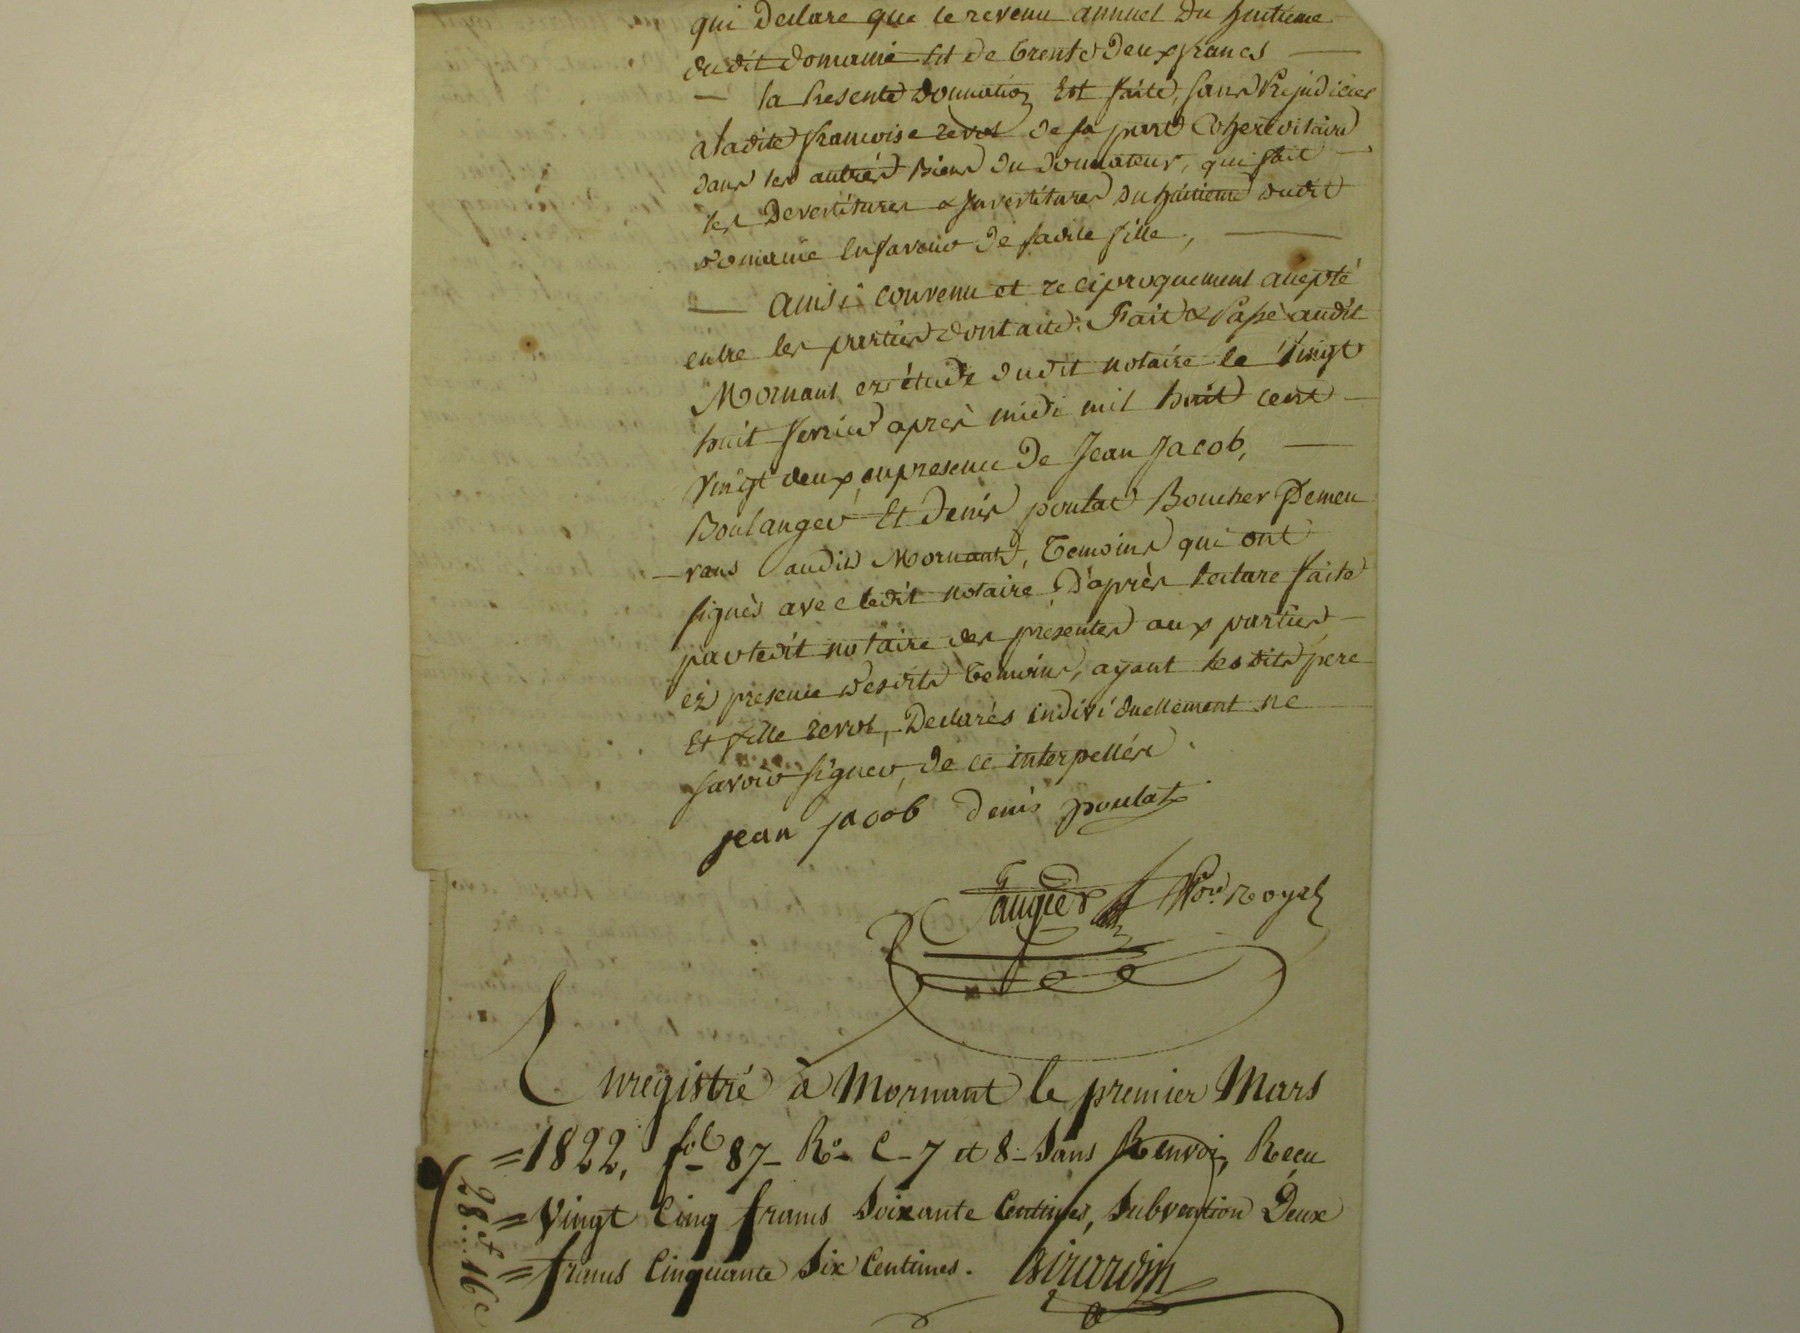 qui declare que le revenu annuel du huitieme
du dit domaine est de trente deux francs
la presente donnation Est faite, sans Prejudicier
a ladite francoise revol de sa part Cohereditaire
dans les autres Biens du donnateur, qui fait
les Devestitures & Investitures du huitieme dudit
domaine En faveur de sadite fille,
Ainsi convenu et reciproquement accepté
entre les parties dont acte. Fait & Passé audit
Mornant en étude dudit notaire le vingt
huit fevrier après midi mil huit cent
vingt deux, en presence de Jean Jacob,
Boulanger Et denis poulat Boucher Demeu
rans audit Mornant, temoins qui ont
signés avec ledit notaire D'après lecture faite
par ledit notaire des présentes aux parties
en presence desdits temoins, ayant lesdits pere
Et fille revol, Declarés individuellement ne
savoir signer, de ce interpellés.
jean jacob denis poulat
Not.re Royal
Enregistré à Mornant le premier Mars
1822, fol 87 Ro C 7 et 8 Sans Renvoi, Reçu
Vingt Cinq francs Soixante Centimes, Subvention Deux
francs Cinquante Six Centimes. Girardin
28f..16c